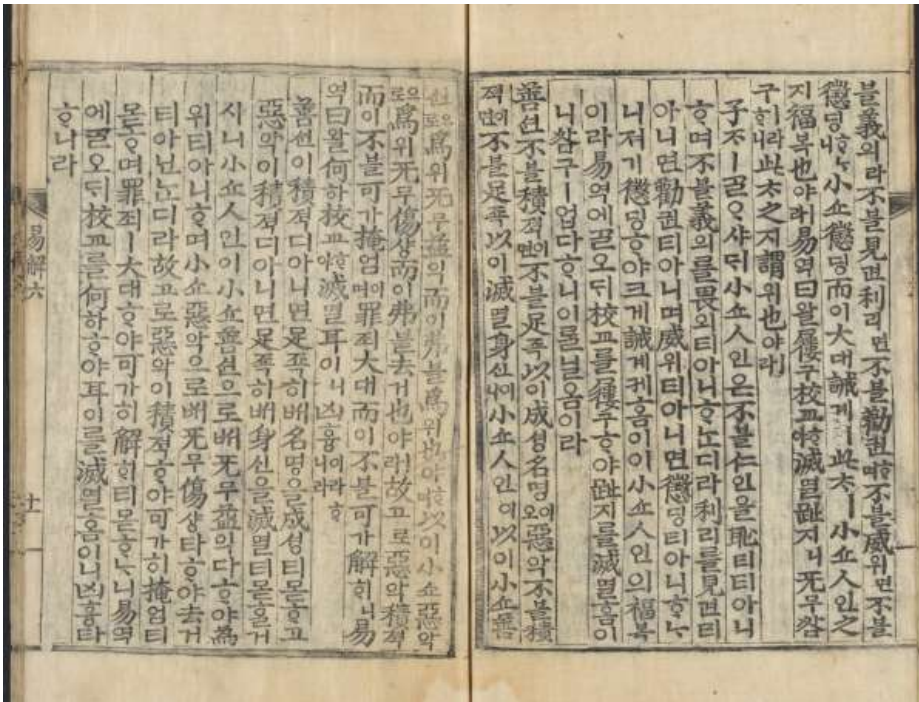 블義의라不블見견利리면不블勸권ᄒᆞ며不블威위면不블
懲딩ᄒᆞᄂᆞ니小쇼懲딩而이大대誡계ㅣ此ᄎᆞㅣ小쇼人인之
지福복也야ㅣ라易역曰왈屨구校교ᄒᆞ야滅멸趾지니无무咎
구ㅣ라ᄒᆞ니此ᄎᆞ之지謂위也야ㅣ라
子ᄌᆞㅣᄀᆞᆯᄋᆞ샤ᄃᆡ小쇼人인은不블仁인을恥티티아니
ᄒᆞ며不블義의를畏외티아니ᄒᆞᄂᆞᆫ디라利리를見견티
아니면勸권티아니며威위티아니면懲딩티아니ᄒᆞᄂᆞ
니져기懲딩ᄒᆞ야크게誡계케홈이이小쇼人인의福복
이라易역에ᄀᆞᆯ오ᄃᆡ校교를屨구ᄒᆞ야趾지를滅멸홈이
니咎구ㅣ업다ᄒᆞ니이ᄅᆞᆯ닐옴이라
善션不블積젹이면不블足죡以이成셩名명이오惡악不블積
젹이면不블足죡以이滅멸身신이니小쇼人인이以이小쇼善
션으로爲위无무益익而이弗블爲위也야ᄒᆞ며以이小쇼惡악
으로爲위无무傷샹而이弗블去거也야ㅣ라故고로惡악積젹
而이不블可가掩엄이며罪죄大대而이不블可가解ᄒᆡ니易
역曰왈何하校교ᄒᆞ야滅멸耳이니凶흉이라ᄒᆞ니라
善션이積젹디아니면足죡히ᄡᅥ名명을成셩티몯ᄒᆞ고
惡악이積젹디아니면足죡히ᄡᅥ身신을滅멸티몯ᄒᆞᆯ거
시니小쇼人인이小쇼善션으로ᄡᅥ无무益익다ᄒᆞ야爲
위티아니ᄒᆞ며小쇼惡악으로ᄡᅥ无무傷샹타ᄒᆞ야去거
티아닌ᄂᆞᆫ디라故고로惡악이積젹ᄒᆞ야可가히掩엄티
몯ᄒᆞ며罪죄ㅣ大대ᄒᆞ야可가히解ᄒᆡ티몯ᄒᆞᄂᆞ니易역
에ᄀᆞᆯ오ᄃᆡ校교를何하ᄒᆞ야耳이를滅멸홈이니凶흉타
ᄒᆞ니라
易解六
十一